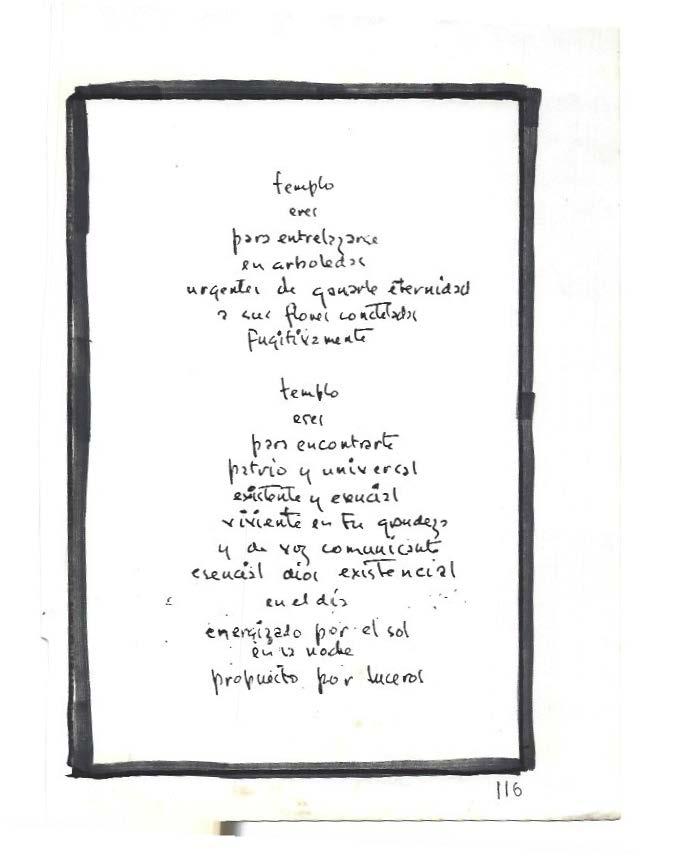 templo
eres
para entrelazarse
en arboledas
urgentes de ganarle eternidad
a sus flores
fugitivamente
templo
eres
para encontrarte
patrio y universal
existente y esencial
viviente en tu grandeza
y de voz comunicante
esencial dios existencial
en el día
energizado por el sol
en la noche
propuesto por luceros
116